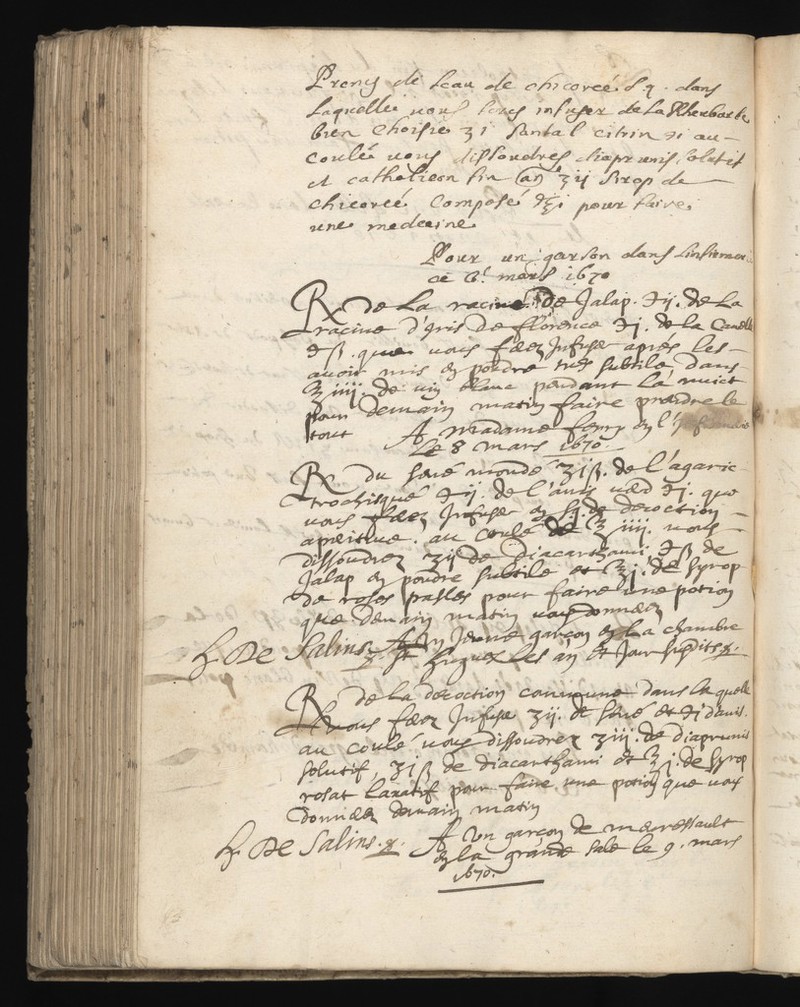 Prenes de leau de chicorée s q. dans
laquelle vous feres infuser de la Rheubarbe
bien choisie ʒi santal citrin ℈i au
coulé vous dissoudres diaprunis solutif
et catholicon fin an ʒij sirop de
chicoreé composé ℥i pour faire
une medecine
Pour un garson dans linfirmeri
ce 8.^e mars 1670
℞ De la racine de Jalap. ℈ij. de la
racine d'Iris de fflorence ℈j. de la Canelle
℈ß. que vous ferez Infuser apres les
avoir mis en poudre tres subtile, dans
℥iiij. de vin blanc pendant la nuict
pour demain matin faire prendre le
tout A Madame en l'
Le 8 mars 1670.
℞ du sené mondé ʒijß. de l'agaric
trochisqué ℈ij. de l'anis verd ℈j. que
vous ferez Infuser en s q. de decoction
aperitive. au coulé de ℥iiij. vous
dissoudrez ʒij de diacarthami ℈ß de
Jalap en poudre subtile et ℥j. de syrop
de roses pasles pour faire une potion
que demain matin vous donnerez
h. De Salins A un Jeune garçon en la chambre
St hugues les an et Jour susdits
℞ de la decoction commune dans laquelle
vous ferez Infuser ʒij. de sené et ℈j d'anis.
au coulé vous dissoudrez ʒiij. de diaprunis
solutif, ʒiß de diacarthami et ℥j. de syrop
rosat laxatif pour faire une potion que vous
donnerez demain matin
h. De Salins. A Un garçon de
en la grande sale le 9. mars
1670.